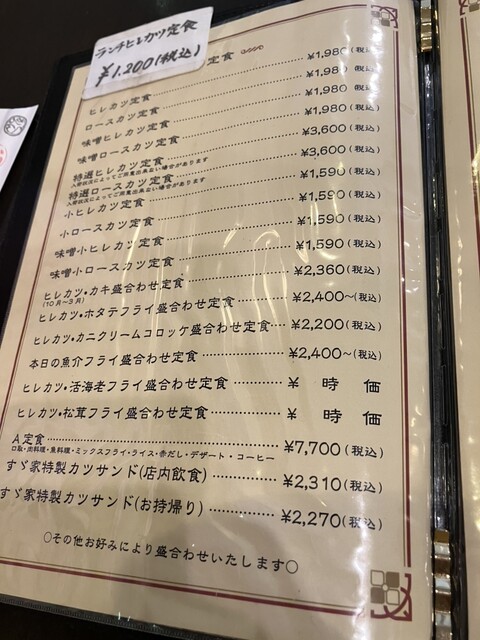 ランチヒレカツ定食
¥1,200(税込)
定食
ヒレカツ定食 ¥1,980(税込)
ロースカツ定食 ¥1,980(税込)
味噌ヒレカツ定食 ¥1,980(税込)
味噌ロースカツ定食 ¥1,980(税込)
特選ヒレカツ定食 ¥3,600(税込)
入荷状況によってご用意出来ない場合があります
特選ロースカツ定食 ¥3,600(税込)
入荷状況によってご用意出来ない場合があります
小ヒレカツ定食 ¥1,590(税込)
小ロースカツ定食 ¥1,590(税込)
味噌小ヒレカツ定食 ¥1,590(税込)
味噌小ロースカツ定食 ¥1,590(税込)
ヒレカツ・カキ盛合わせ定食 ¥2,360(税込)
(10月〜3月)
ヒレカツ・ホタテフライ盛合わせ定食 ¥2,400〜(税込)
ヒレカツ・カニクリームコロッケ盛合わせ定食 ¥2,200(税込)
本日の魚介フライ盛合わせ定食 ¥2,400〜(税込)
ヒレカツ・活海老フライ盛合わせ定食 ¥ 時 価
ヒレカツ・松茸フライ盛合わせ定食 ¥ 時 価
A定食 ¥7,700(税込)
口取・肉料理・魚料理・ミックスフライ・ライス・赤だし・デザート・コーヒー
すゞ家特製カツサンド(店内飲食) ¥2,310(税込)
すゞ家特製カツサンド(お持帰り) ¥2,270(税込)
○その他お好みにより盛合わせいたします○